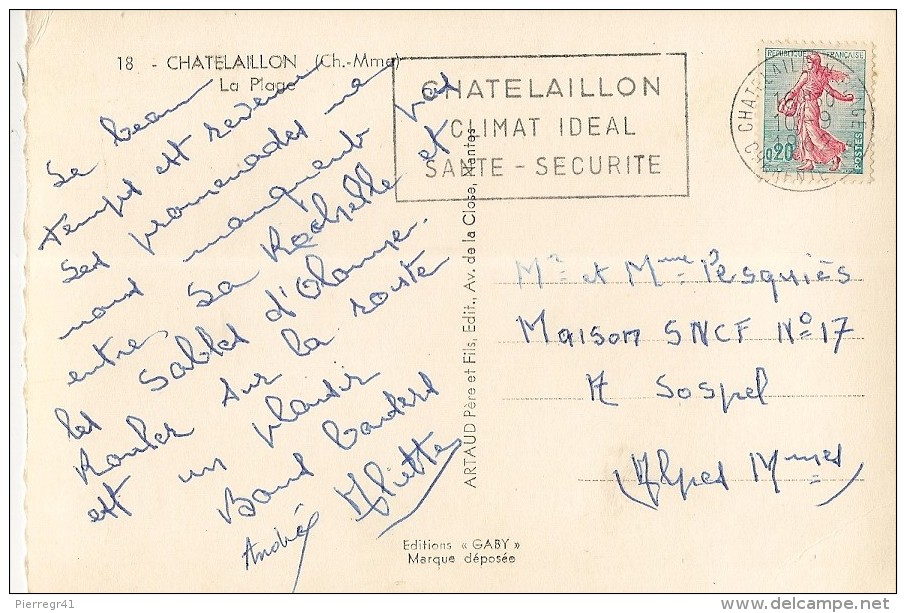 18 - CHATELAILLON (Ch.-Mme)
La Plage
Le beau
temps est revenu
Les promenades ne
nous manquent pas
entre La Rochelle et
les Sables d'Olonnes.
Rouler sur la route
est un plaisir
Bons baisers
André Aliette
CHATELAILLON
CLIMAT IDEAL
SANTE - SECURITE
REPUBLIQUE FRANÇAISE
0,20
POSTES
ARTAUD Père et Fils, Edit., Av. de la Close, Nantes
Mr et Mme Pesquiès
Maison SNCF No 17
A Sospel
(Alpes Mmes)
Editions « GABY »
Marque déposée
Pierregr41
delcampe.net